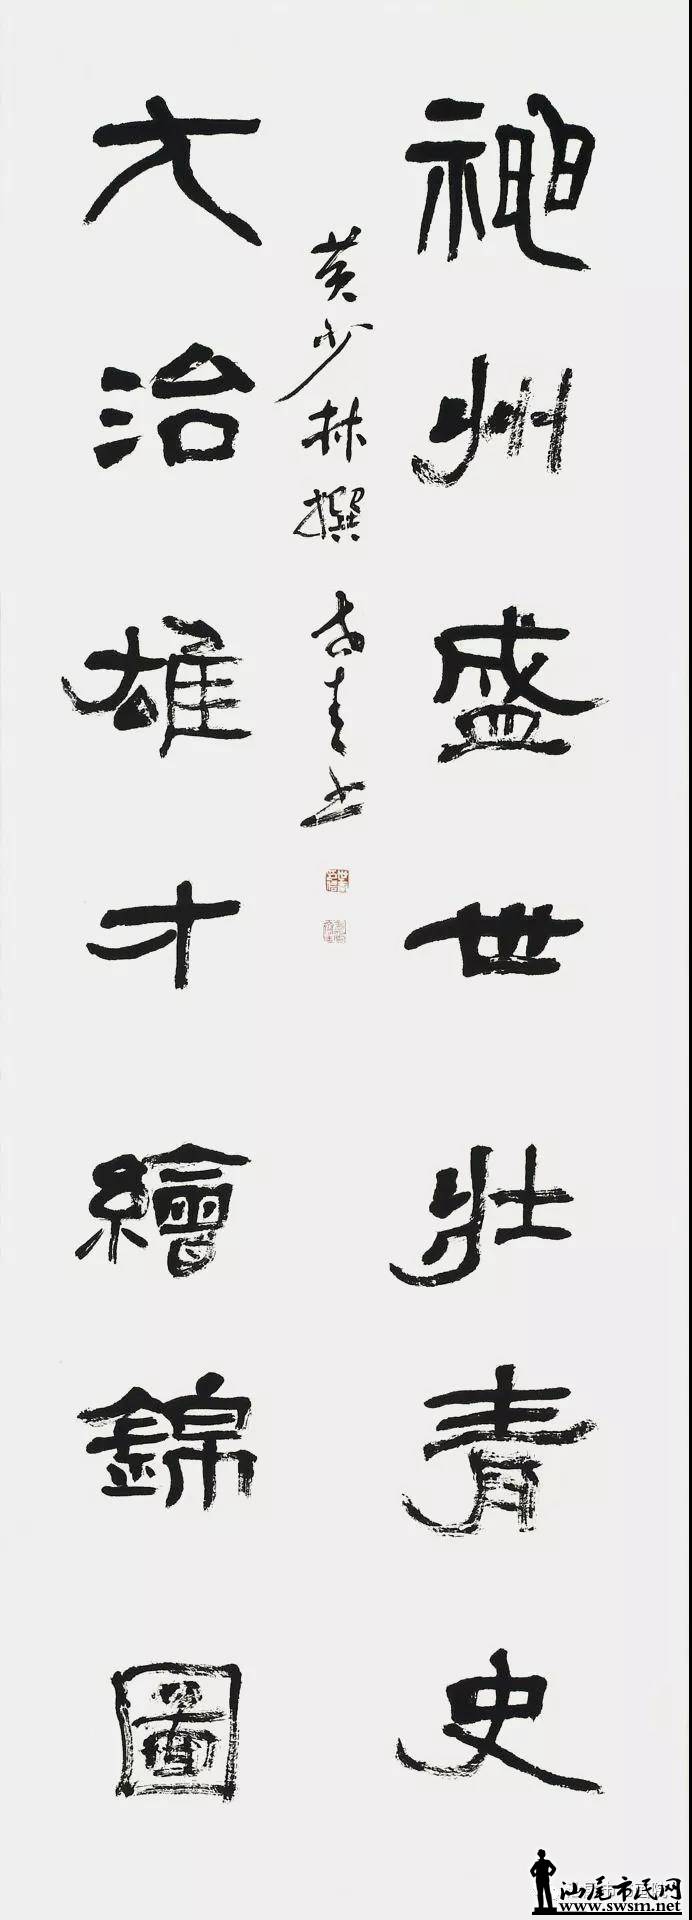 神州盛世壯青史
大治雄才繪錦圖
黄少林撰 青书
汕尾市民网
www.swsm.net